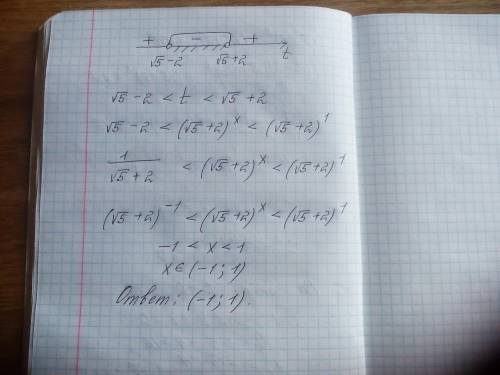 + − +
√5 − 2 √5 + 2 t
√5 − 2 < t < √5 + 2
√5 − 2 < (√5 + 2)^x < (√5 + 2)^1
1/(√5 + 2) < (√5 + 2)^x < (√5 + 2)^1
(√5 + 2)^−1 < (√5 + 2)^x < (√5 + 2)^1
−1 < x < 1
x ∈ (−1; 1)
Ответ: (−1; 1).